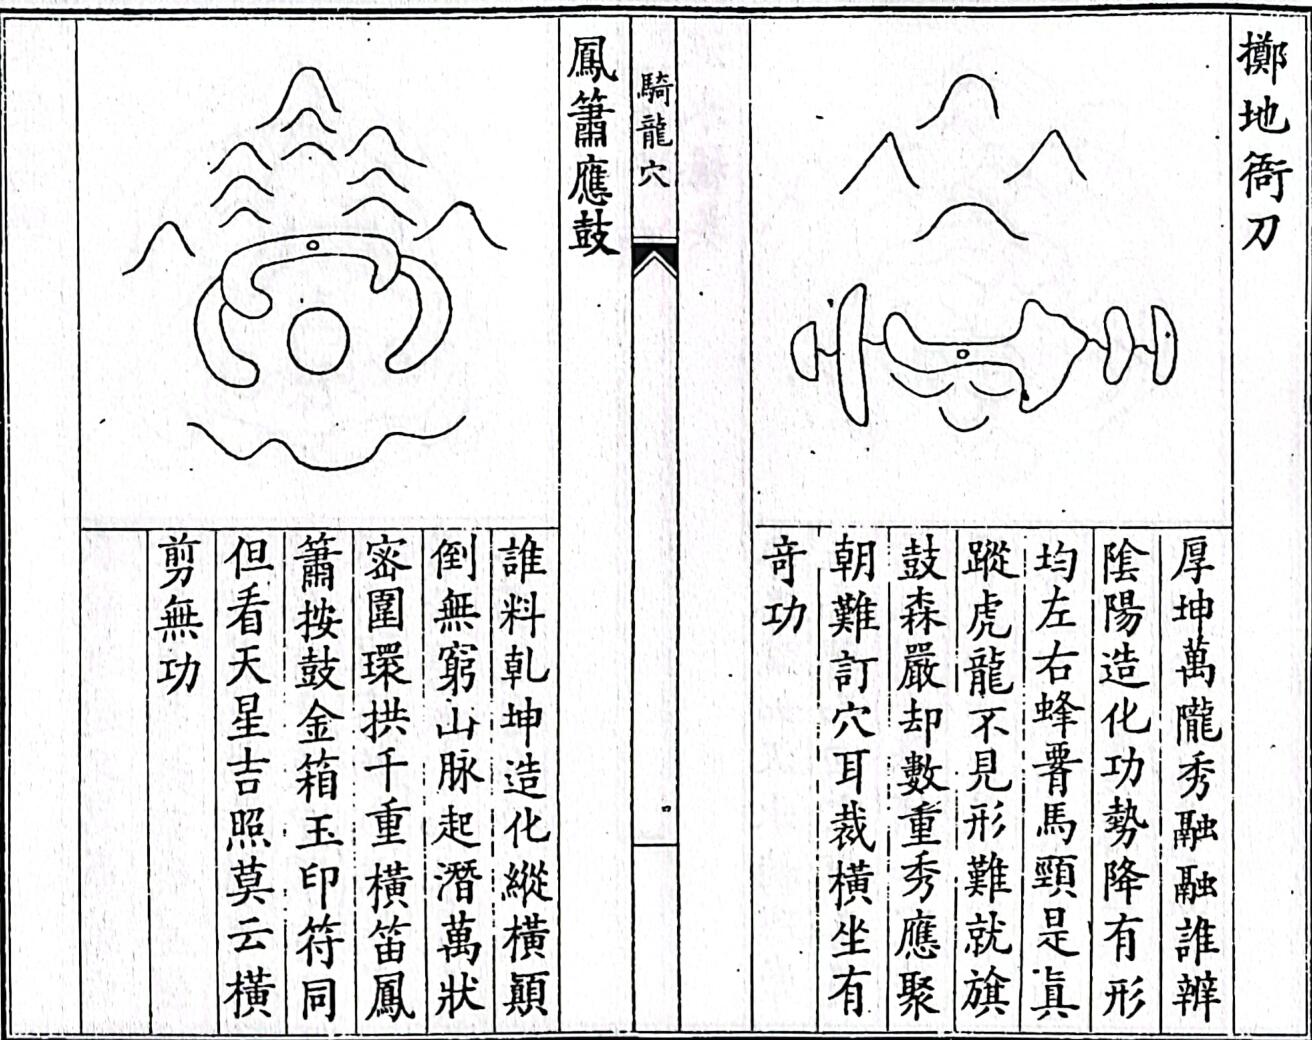 擲地衙刀
厚坤萬隴秀融融誰辨
陰陽造化功勢降有形
均左右蜂腰馬頸是真
蹤虎龍不見形難就旗
鼓森嚴却數重秀應聚
朝難訂穴耳裁橫坐有
奇功
騎龍穴
鳳簫應鼓
誰料乹坤造化縱橫顛
倒無窮山脉起潛萬狀
宻圍環拱千重橫笛鳳
簫按鼓金箱玉印符同
但看天星吉照莫云橫
剪無功